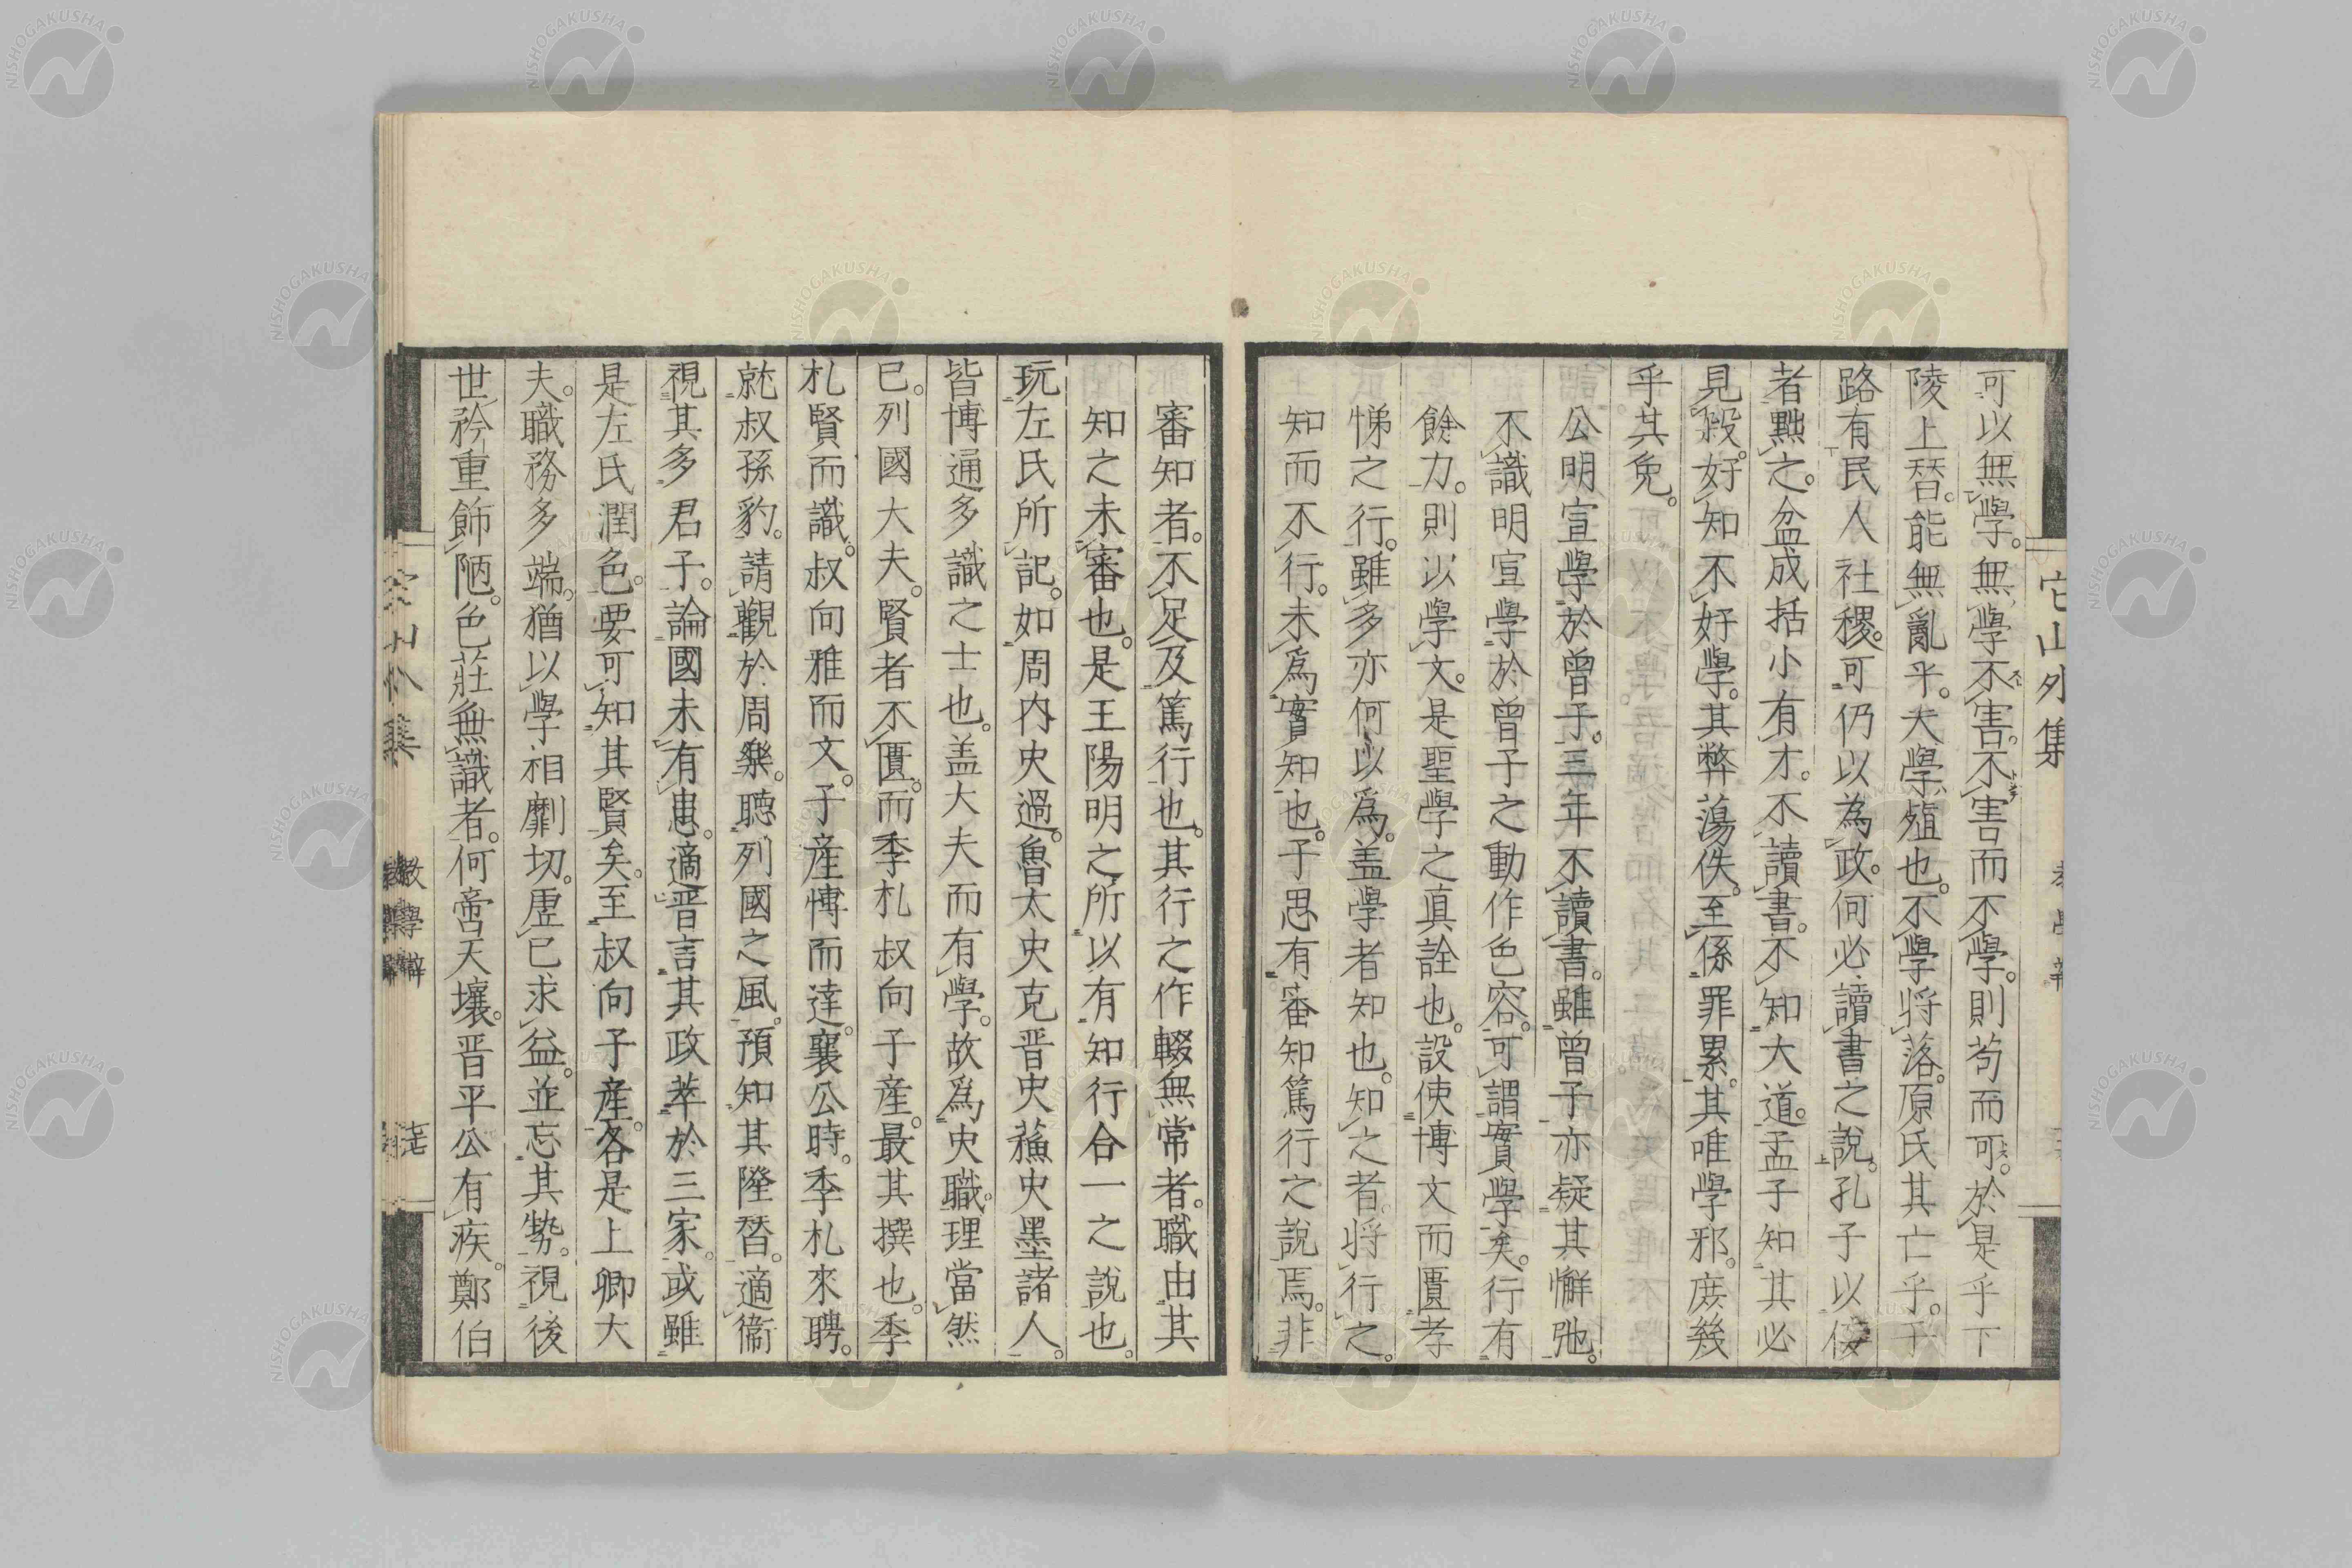 它山外集
可以無學。無學不害。不害而不學。則苟而可。於是乎下
陵上替。能無亂乎。夫學殖也。不學將落。原氏其亡乎。子
路有民人社稷。可仍以為政。何必讀書之說。孔子以佞
者黜之。盆成括小有才。不讀書。不知大道。孟子知其必
見殺。好知不好學。其弊蕩佚。至係罪累。其唯學邪。庶幾
乎其免。
公明宣學於曾子。三年不讀書。雖曾子亦疑其懈弛。
不識明宣學於曾子之動作色容。可謂實學矣。行有
餘力。則以學文。是聖學之眞詮也。設使博文而匱孝
悌之行。雖多亦何以爲。盖學者知也。知之者。將行之。
知而不行。未爲實知也。子思有審知篤行之說焉。非
審知者。不足及篤行也。其行之作輟無常者。職由其
知之未審也。是王陽明之所以有知行合一之說也。
玩左氏所記。如周內史過。魯太史克晋史蘓史墨諸人。
皆博通多識之士也。盖大夫而有學。故爲史職。理當然
已。列國大夫。賢者不匱。而季札叔向子產。最其撰也。季
札賢而識。叔向雅而文。子產博而達。襄公時。季札來聘。
就叔孫豹。請觀於周樂。聽列國之風。預知其隆替。適衞
視其多君子。論國未有患。適晋言其政萃於三家。或雖
是左氏潤色。要可知其賢矣。至叔向子產。各是上卿大
夫。職務多端。猶以學相劘切。虛已求益。並忘其勢。視後
世矜重飾陋。色莊無識者。何啻天壤。晋平公有疾。鄭伯
教學辯